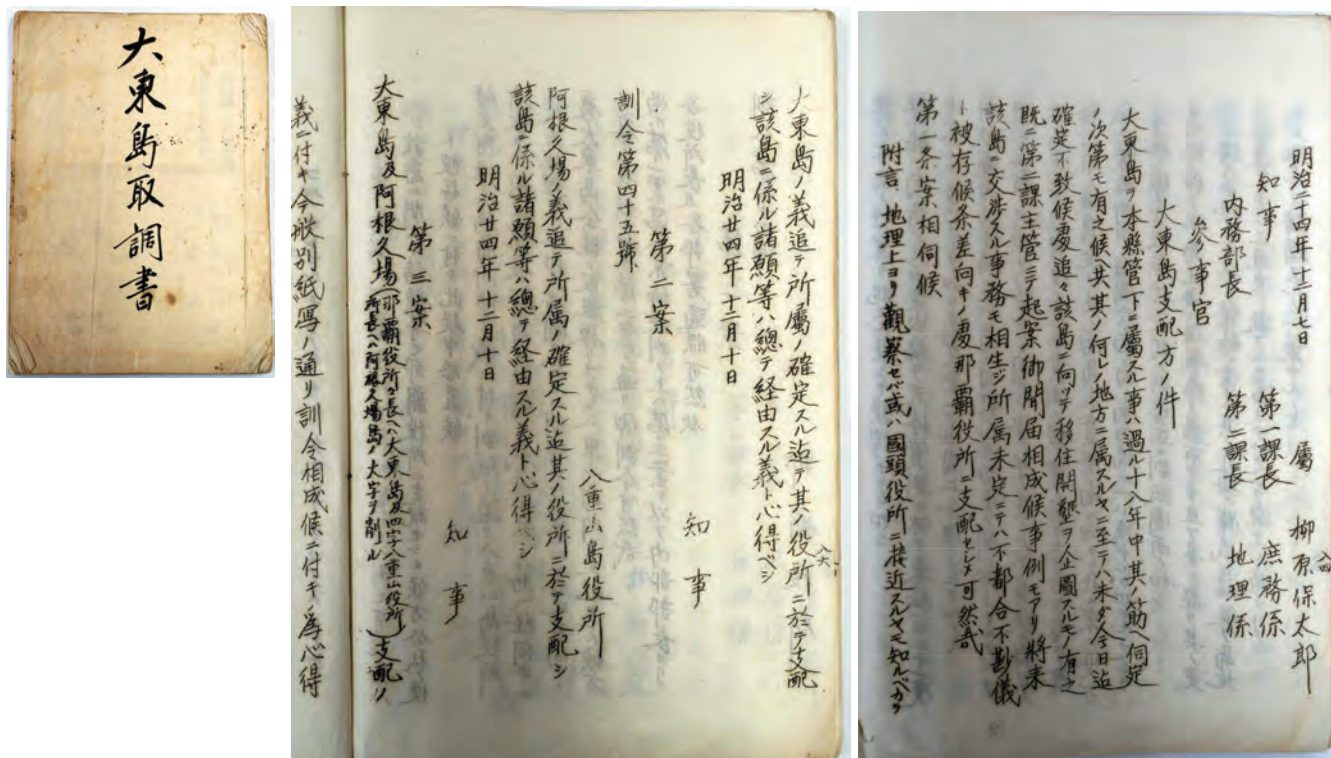 大東島取調書
明治二十四年十二月七日
屬 柳原保太郎
知事
第一課長 庶務係
内務部長
第二課長 地理係
參事官
大東島支配方ノ件
大東島ヲ本縣管下ニ屬スル事ハ過ル十八年中其ノ筋ヘ伺定
ノ次第モ有之候共其ノ何レノ地方ニ属スルヤニ至テハ未タ今日迠
確定不致候處追々該島ニ向ッテ移住開墾ヲ企圖スルモ有之
既ニ第二課主管ニテ起案御聞届相成候事例モアリ將来
該島ニ交渉スル事務モ相生ジ所属未定ニテハ不都合不尠儀
ト被存候条差向キノ處那覇役所ニ支配セシメ可然哉
第一条案相伺候
附言 地理上ヨリ觀察セバ或ハ國頭役所ニ接近スルヤモ知ルベカラ
大東島ノ義追テ所屬ノ確定スル迠テ其ノ役所ニ於テ支配
シ該島ニ係ル諸願等ハ總テ経由スル義ト心得ベシ
明治廿四年十二月十日
知事
第二案
訓令第四十五號
八重山島役所
阿根久場ノ義追テ所属ノ確定スル迠其ノ役所ニ於テ支配シ
該島ニ係ル諸願等ハ總テ経由スル義ト心得ベシ
明治廿四年十二月十日
知事
第三案
大東島及阿根久場(那覇役所々長ヘハ大東島及四字八重山役所
所長ヘハ阿根久場島ノ大字ヲ削ル)支配ノ
義ニ付キ今般別紙寫ノ通リ訓令相成候ニ付キ為心得